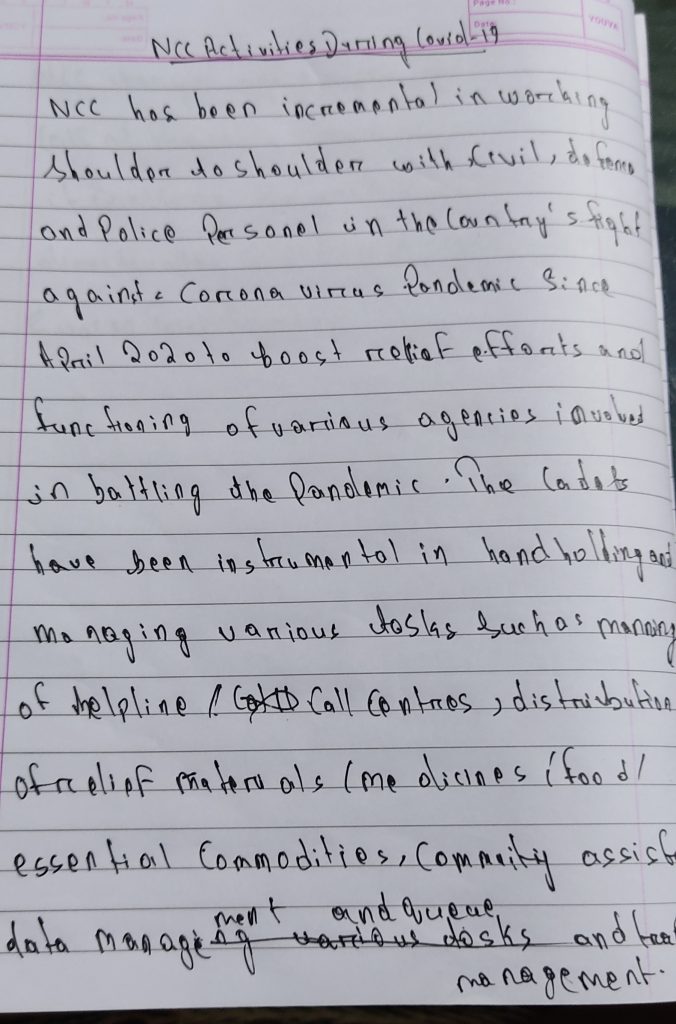 Page No.:
Date:
YOUVA
NCC Activities During Covid-19
NCC has been incremental in working
shoulder to shoulder with Civil, defence
and Police Personel in the Country's fight
against Corona virus Pandemic Since
April 2020 to boost relief efforts and
functioning of various agencies involved
in battling the Pandemic. The Cadets
have been instrumental in handholding and
managing various tasks Such as manning
of helpline / Call Centres, distribution
of relief materials (medicines / food /
essential Commodities, Commuity assist
ment and queue
data manage various tasks and
management.